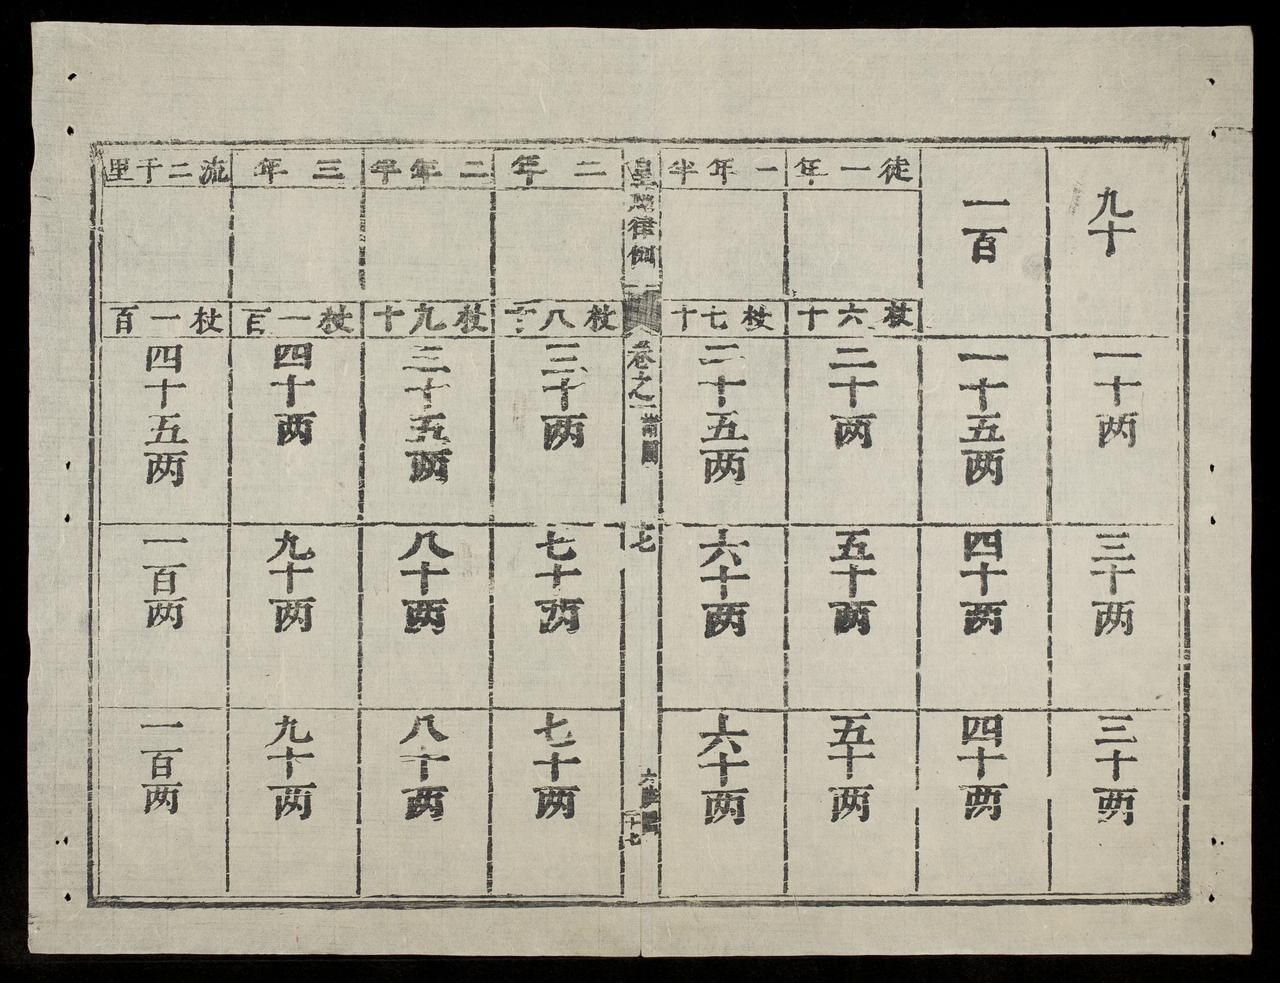 九十
一十两
三十两
三十两
一百
一十五两
四十两
四十两
徒一年
杖六十
二十两
五十两
五十两
一年半
杖七十
二十五两
六十两
六十两
皇越律例
卷之一
七
二年
杖八十
三十两
七十两
七十两
二年半
杖九十
三十五两
八十两
八十两
三年
杖一百
四十两
九十两
九十两
流二千里
杖一百
四十五两
一百两
一百两